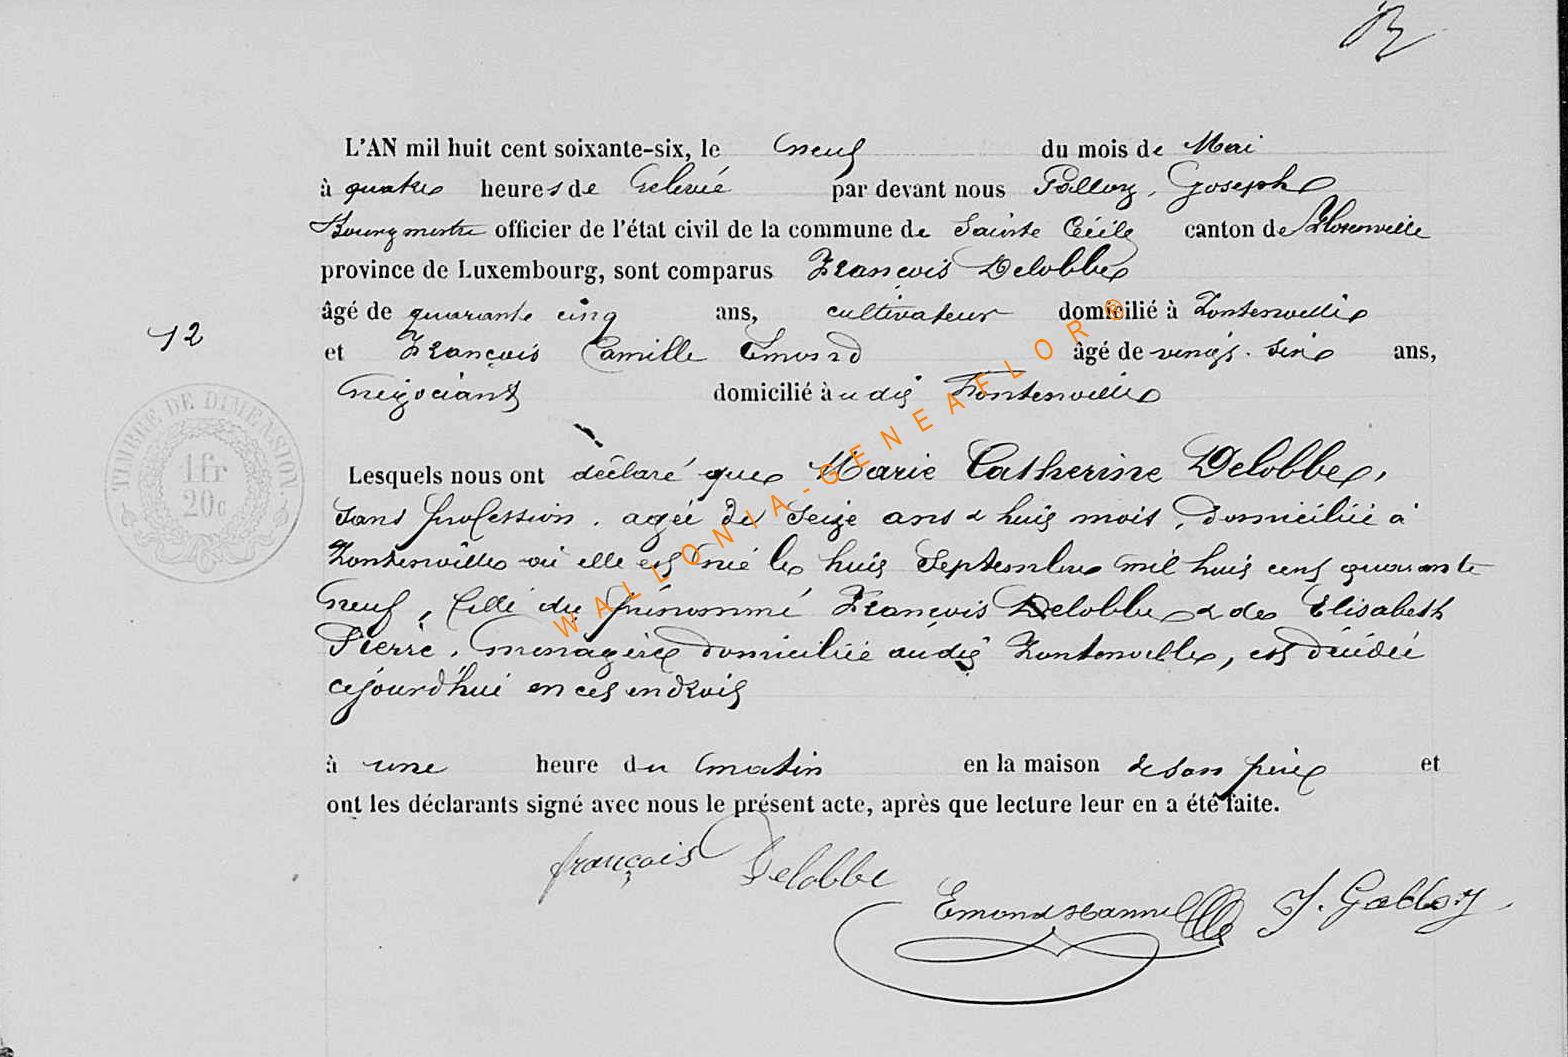 L'AN mil huit cent soixante-six, le neuf du mois de Mai
à quatre heures de relevée par devant nous Joseph
Bourgmestre officier de l'état civil de la commune de Sainte Cécile canton de Florenville
province de Luxembourg, sont comparus François Delobbe
âgé de quarante cinq ans, cultivateur domicilié à Fontenoille
et François Camille Emond âgé de vingt-six ans,
12
négociant domicilié àu dit Fontenoille
TIMBRE DE DIMENSION.
1fr
20c
Lesquels nous ont déclaré que Marie Catherine Delobbe,
sans profession, agée de seize ans & huit mois, domiciliée à
Fontenoille où elle est née le huit Septembre mil huit cent quarante
neuf, fille du prénommé François Delobbe & de Elisabeth
Pierre, ménagère domiciliée audit Fontenoille, est décédée
cejourd'hui en cet endroit
à une heure du matin en la maison de son père et
ont les déclarants signé avec nous le présent acte, après que lecture leur en a été faite.
françois Delobbe
Emond J.
WALLONIA-GENEAFLOR®